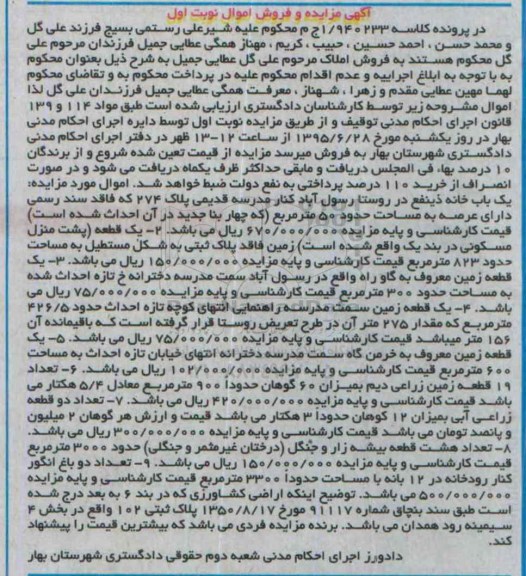 آگهی مزایده و فروش اموال نوبت اول
در پرونده کلاسه ۱/۹۴۰۲۳۳ج م محکوم علیه شیرعلی رستمی بسیج فرزند علی گل
و محمد حسن ، احمد حسین ، حبیب ، کریم ، مهناز همگی عطایی جمیل فرزندان مرحوم علی
گل محکوم هستند به فروش املاک مرحوم علی گل عطایی جمیل به شرح ذیل بعنوان محکوم
به با توجه به ابلاغ اجراییه و عدم اقدام محکوم علیه در پرداخت محکوم به و تقاضای محکوم
لهما مهین عطایی مقدم و زهرا ، شهناز ، معرفت همگی عطایی جمیل فرزندان علی گل لذا
اموال مشروحه زیر توسط کارشناسان دادگستری ارزیابی شده است طبق مواد ۱۱۴ و ۱۳۹
قانون اجرای احکام مدنی توقیف و از طریق مزایده نوبت اول توسط دایره اجرای احکام مدنی
بهار در روز یکشنبه مورخ ۱۳۹۵/۶/۲۸ از ساعت ۱۲-۱۳ ظهر در دفتر اجرای احکام مدنی
دادگستری شهرستان بهار به فروش میرسد مزایده از قیمت تعین شده شروع و از برندگان
۱۰ درصد بها، فی المجلس دریافت و مابقی حداکثر ظرف یکماه دریافت می شود و در صورت
انصراف از خرید ۱۱۰ درصد پرداختی به نفع دولت ضبط خواهد شد. اموال مورد مزایده:
یک باب خانه ذینفع در روستا رسول آباد کنار مدرسه قدیمی پلاک ۲۷۴ که فاقد سند رسمی
دارای عرصه به مساحت حدود ۵۰۰ مترمربع (که چهار بنا جدید در آن احداث شده است)
قیمت کارشناسی و پایه مزایده ۶۷۰/۰۰۰/۰۰۰ ریال می باشد. ۲- یک قطعه (پشت منزل
مسکونی در بند یک واقع شده است) زمین فاقد پلاک ثبتی به شکل مستطیل به مساحت
حدود ۸۲۳ مترمربع قیمت کارشناسی و پایه مزایده ۱۵۰/۰۰۰/۰۰۰ ریال می باشد. ۳- یک
قطعه زمین معروف به گاو راه واقع در رسول آباد سمت مدرسه دخترانه خ تازه احداث شده
به مساحت حدود ۳۰۰ مترمربع قیمت کارشناسی و پایه مزایده ۷۵/۰۰۰/۰۰۰ ریال می
باشد. ۴- یک قطعه زمین سمت مدرسه راهنمایی انتهای کوچه تازه احداث حدود ۴۲۶/۵
مترمربع که مقدار ۲۷۵ متر آن در طرح تعریض روستا قرار گرفته است که باقیمانده آن
۱۵۶ متر میباشد قیمت کارشناسی و پایه مزایده ۷۵/۰۰۰/۰۰۰ ریال می باشد. ۵- یک
قطعه زمین معروف به خرمن گاه سمت مدرسه دخترانه انتهای خیابان تازه احداث به مساحت
۶۰۰ مترمربع قیمت کارشناسی و پایه مزایده ۱۰۲/۰۰۰/۰۰۰ ریال می باشد. ۶- تعداد
۱۹ قطعه زمین زراعی دیم بمیزان ۶۰ گوهان حدوداً ۹۰۰ مترمربع معادل ۵/۴ هکتار می
باشد قیمت کارشناسی و پایه مزایده ۴۲۰/۰۰۰/۰۰۰ ریال می باشد. ۷- تعداد دو قطعه
زراعی آبی بمیزان ۱۲ کوهان حدوداً ۳ هکتار می باشد قیمت و ارزش هر گوهان ۲ میلیون
و پانصد تومان می باشد قیمت کارشناسی و پایه مزایده ۳۰۰/۰۰۰/۰۰۰ ریال می باشد.
۸- تعداد هشت قطعه بیشه زار و جنگل (درختان غیرمثمر و جنگلی) حدود ۳۰۰۰ مترمربع
قیمت کارشناسی و پایه مزایده ۱۵۰/۰۰۰/۰۰۰ ریال می باشد. ۹- تعداد دو باغ انگور
کنار رودخانه در ۱۲ بانه با مساحت حدوداً ۳۳۰۰ مترمربع قیمت کارشناسی و پایه مزایده
۵۰۰/۰۰۰/۰۰۰ می باشد. توضیح اینکه اراضی کشاورزی که در بند ۶ به بعد درج شده
است طبق سند بنچاق شماره ۹۱۱۱۷ مورخ ۱۳۵۰/۸/۱۷ پلاک ثبتی ۱۰۲ واقع در بخش ۴
سیمینه رود همدان می باشد. برنده مزایده فردی می باشد که بیشترین قیمت را پیشنهاد
کند.
دادورز اجرای احکام مدنی شعبه دوم حقوقی دادگستری شهرستان بهار